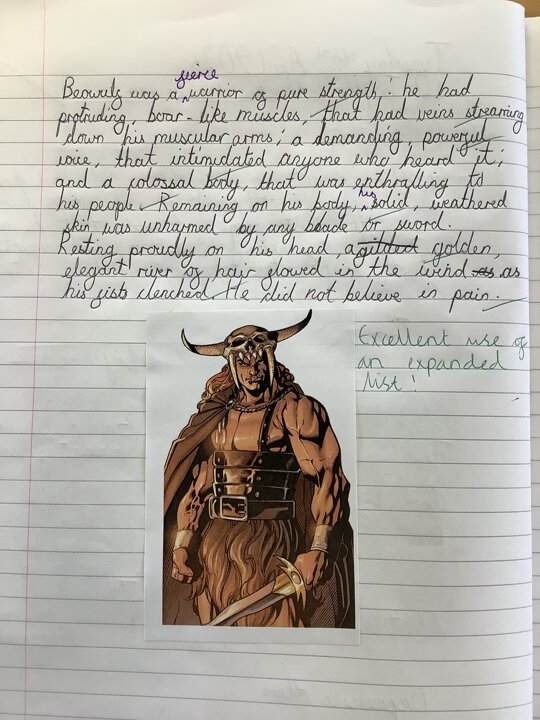 fierce
Beowulf was a warrior of pure strength: he had
protruding, boar-like muscles, that had veins streaming
down his muscular arms; a demanding, powerful
voice, that intimidated anyone who heard it;
and a colossal body, that was enthralling to
his people. Remaining on his body, his solid, weathered
skin was unharmed by any blade or sword.
Resting proudly on his head, a gilded golden,
elegant river of hair flowed in the wind as as
his fists clenched. He did not believe in pain.
Excellent use of
an expanded
list!